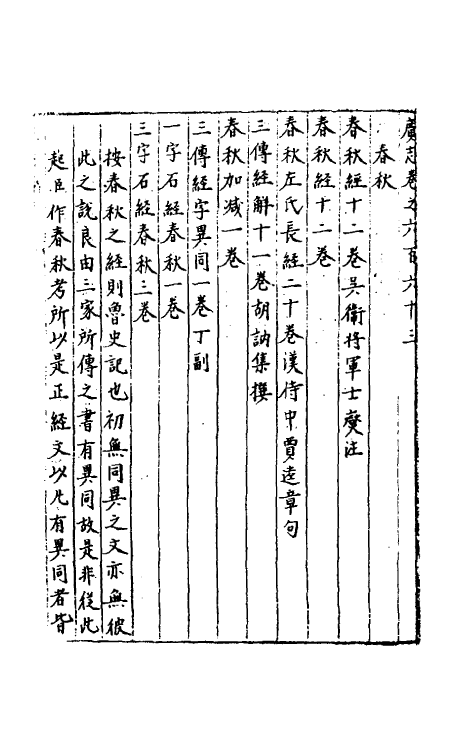 廣志卷之六百六十三
春秋
春秋經十二卷吳衛將軍士燮注
春秋經十二卷
春秋左氏長經二十卷漢侍中賈逵章句
三傳經解十一卷胡訥集撰
春秋加减一卷
三傳經字異同一卷丁副
一字石經春秋一卷
三字石經春秋三卷
按春秋之經則魯史記也初無同異之文亦無彼
此之説良由三家所傳之書有異同故是非從此
起臣作春秋考所以是正經文以凡有異同者皆